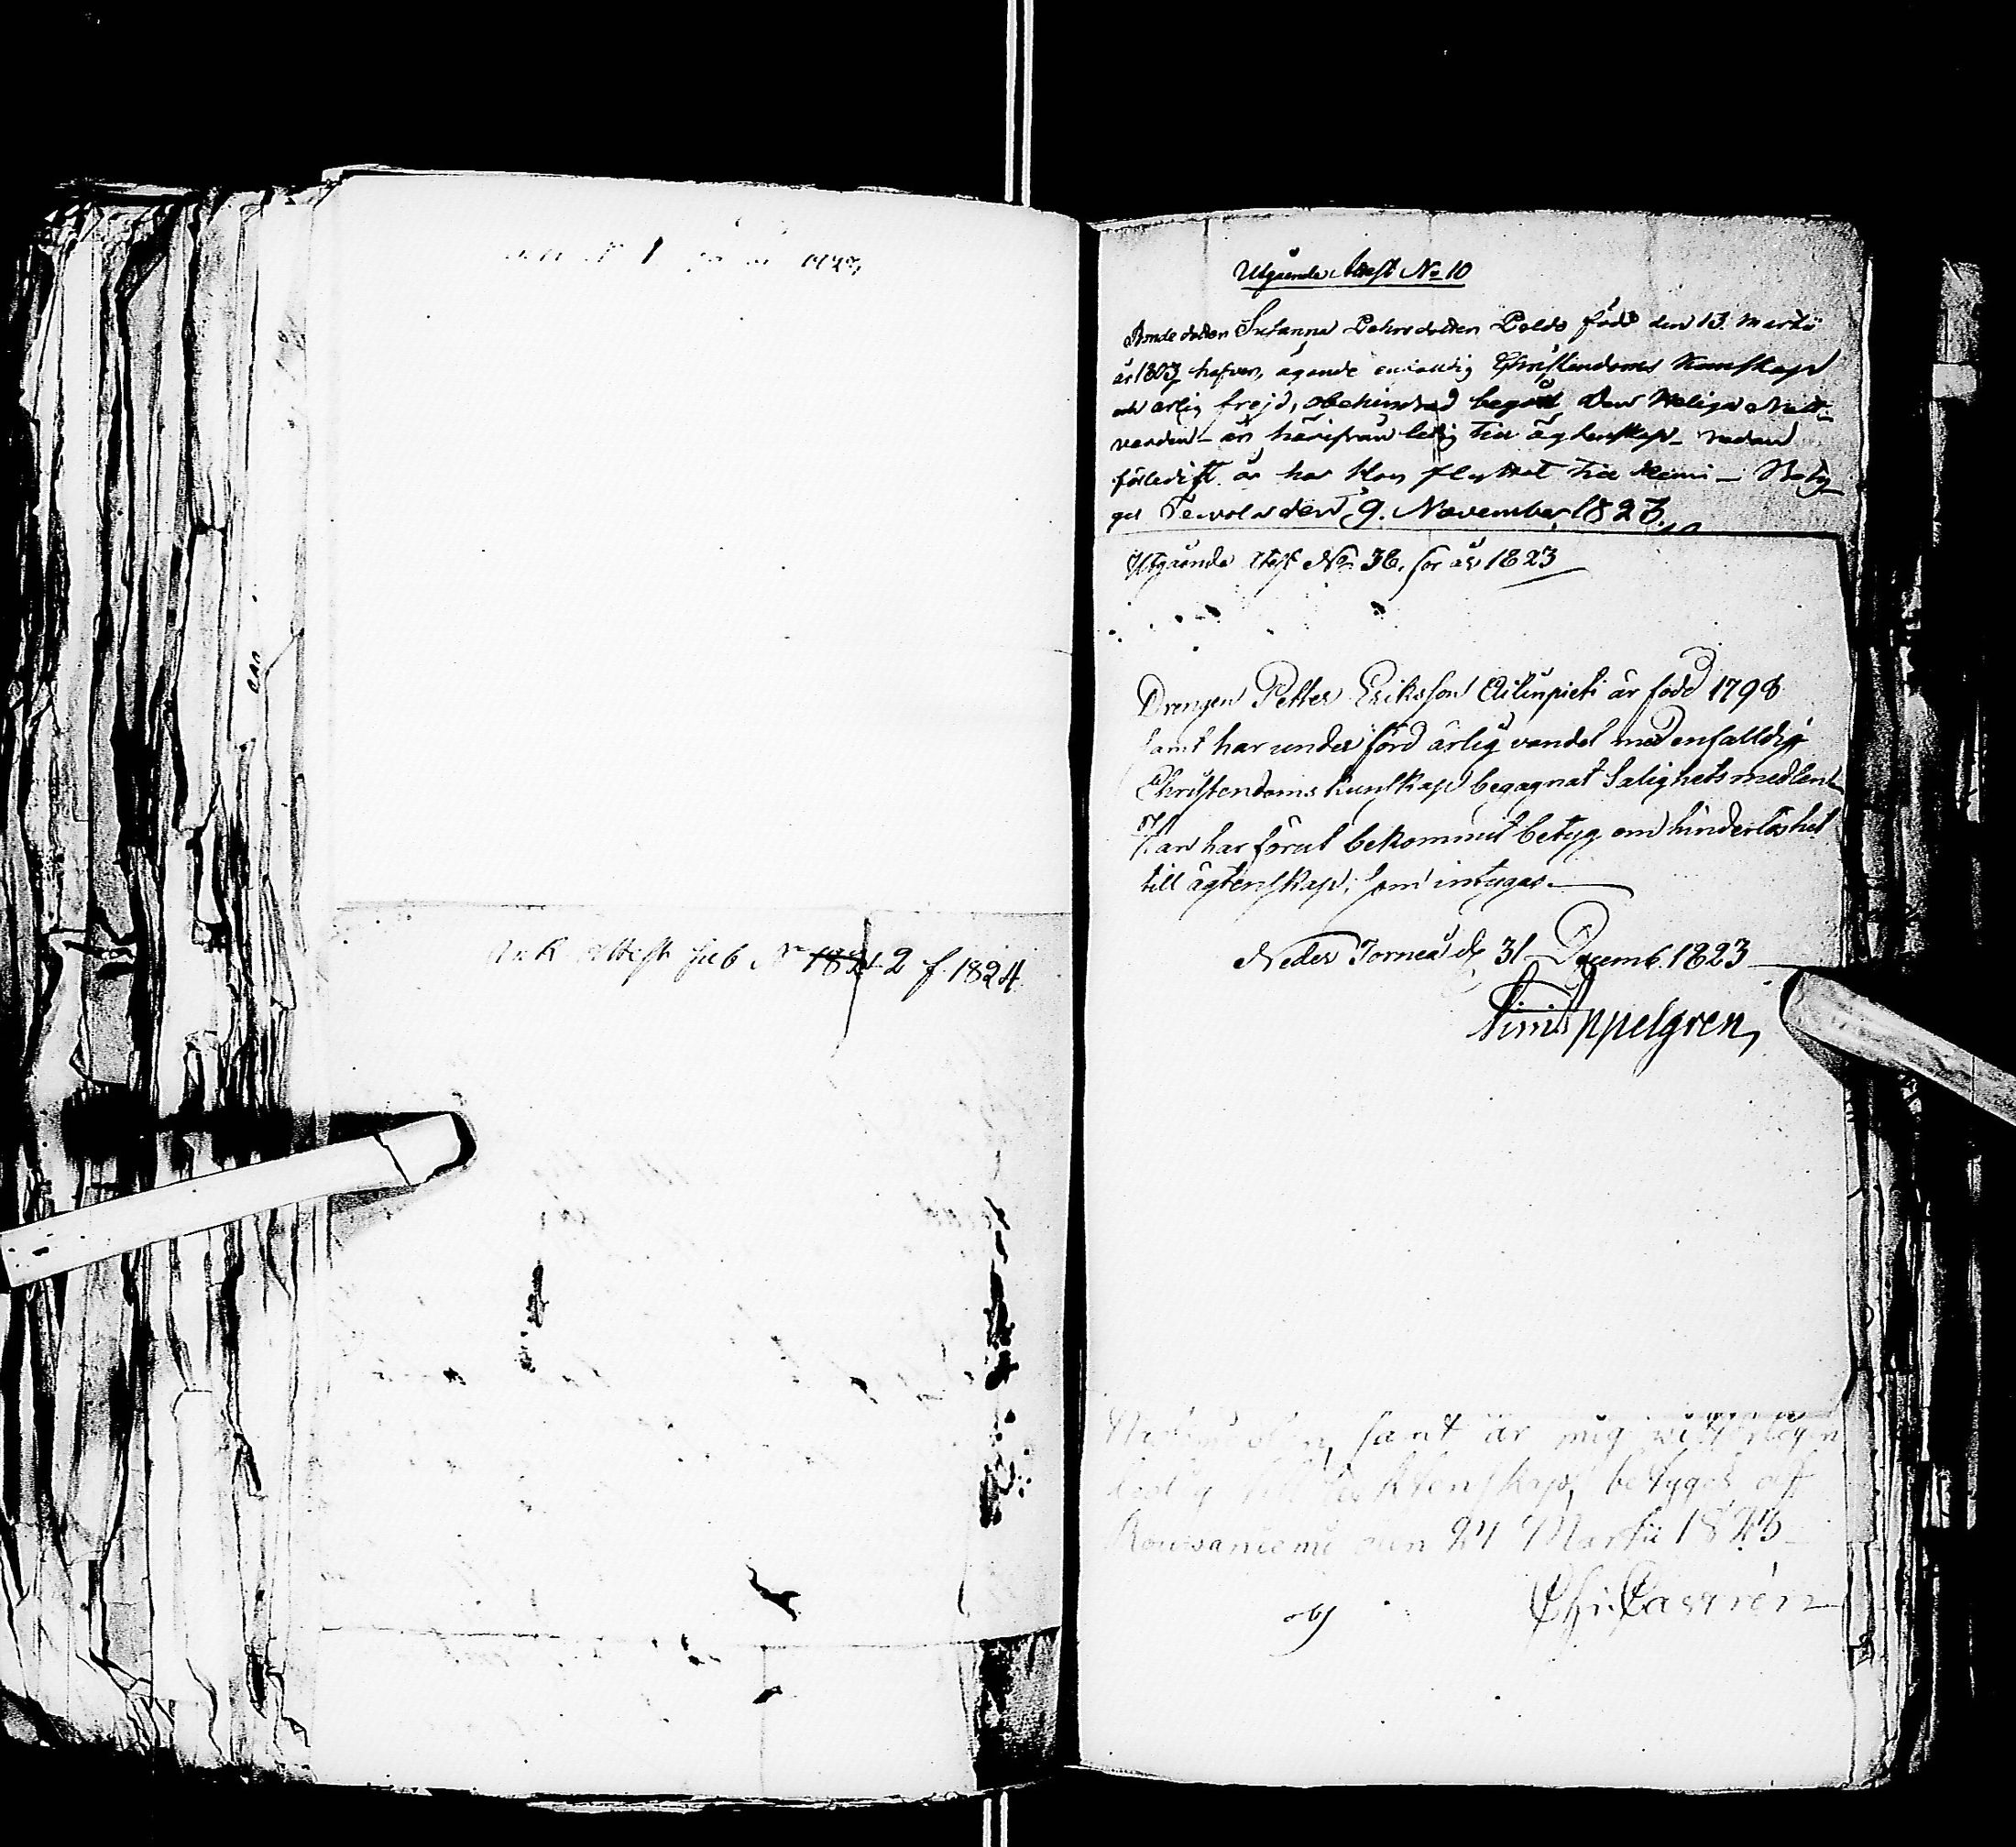 Ank Attest sub No 2 f. 1824
Utgående Attest No 10
Bonde dottren Susanna Pehrsdotter född den 13 Martii
år 1803 hafver, ägande enfaldig Christendoms Kunskap
och ärlig frejd, obehindrad begått Den Heliga Natt-
varden - är härifrån ledig till ägtenskap - redan
förledit år har Hon flyttat till Kemi - Bety-
gar Tervola den 9. November 1823.
Utgående Attest No 36. för år 1823
Drengen Petter Eriksson är född 1798
samt har under förd ärlig vandel med enfalldig
Christendoms kunskap begagnat Salighetsmedlen
Han har förut bekommit betyg om hinderlöshet
till ägtenskap; som intygas.
Neder Torneå d. 31 Decemb. 1823
Appelgren
samt är mig
ledig till äcktenskap, betygas af
Rovaniemi den 24 Martii 1823
Castrén